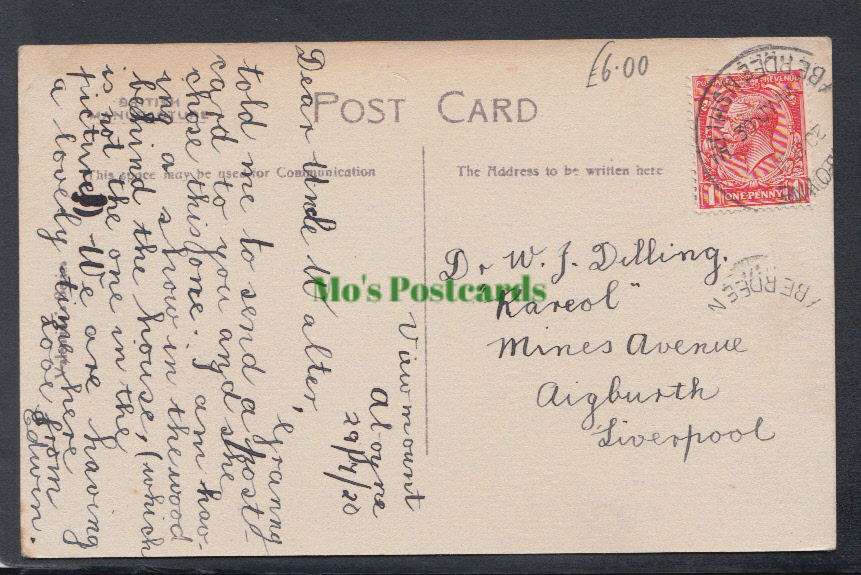 £6.00
BRITISH
MANUFACTURE
POST CARD
This space may be used for Communication
The Address to be written here
ABERDEEN
REVENUE
ONE PENNY
ABERDEEN
Viewmount
Aboyne
29/7/20
Dear Uncle Walter,
Granny
told me to send a post-
card to you and she
chose this one. I am hav-
ing a show in the wood
behind the house, (which
is not the one in the
picture) We are having
a lovely time here
Love from
Edwin.
Dr W. J. Dilling.
"Kareol"
Mines Avenue
Aigburth
Liverpool
Mo's Postcards